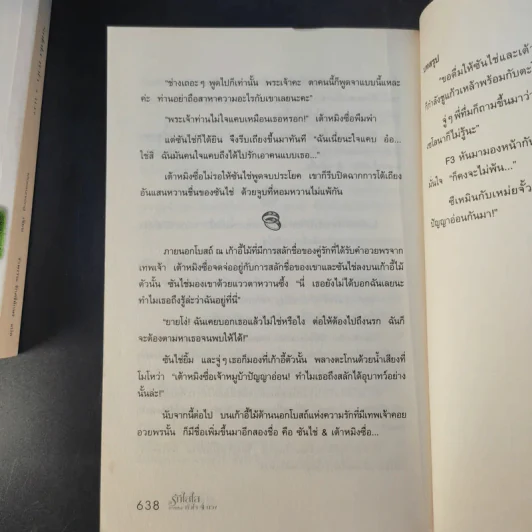 "ช่างเถอะๆ พูดไปก็เท่านั้น พระเจ้าคะ ตาคนนี้ก็พูดจาแบบนี้แหละ
ค่ะ ท่านอย่าถือสาหาความอะไรกับเขาเลยนะคะ"
"พระเจ้าท่านไม่ใจแคบเหมือนเธอหรอก!" เต้าหมิงซื่อพึมพำ
แต่ซันไช่ก็ได้ยิน จึงรีบเถียงขึ้นมาทันที "ฉันเนี่ยนะใจแคบ อ้อ...
ใช่สิ ฉันมันคนใจแคบถึงได้ไปรักเอาคนแบบเธอ..."
เต้าหมิงซื่อไม่รอให้ซันไช่พูดจบประโยค เขาก็รีบปิดฉากการโต้เถียง
อันแสนหวานชื่นของซันไช่ ด้วยจูบที่หอมหวานไม่แพ้กัน
ภายนอกโบสถ์ ณ เก้าอี้ไม้ที่มีการสลักชื่อของคู่รักที่ได้รับคำอวยพรจาก
เทพเจ้า เต้าหมิงซื่อจดจ่ออยู่กับการสลักชื่อของเขาและซันไช่ลงบนเก้าอี้ไม้
ตัวนั้น ซันไช่มองเขาด้วยแววตาหวานซึ้ง "นี่ เธอยังไม่ได้บอกฉันเลยนะ
ทำไมเธอถึงรู้ล่ะว่าฉันอยู่ที่นี่"
"ยายโง่! ฉันเคยบอกเธอแล้วไม่ใช่หรือไง ต่อให้ต้องไปถึงนรก ฉันก็
จะต้องตามหาเธอจนพบให้ได้!"
ซันไช่ยิ้ม และจู่ๆ เธอก็มองที่เก้าอี้ตัวนั้น พลางตะโกนด้วยน้ำเสียงที่
โมโหว่า "เต้าหมิงซื่อเจ้าหมูบ้าปัญญาอ่อน! ทำไมเธอถึงสลักได้อุบาทว์อย่าง
นั้นล่ะ!"
นับจากนี้ต่อไป บนเก้าอี้ไม้ด้านนอกโบสถ์แห่งความรักที่มีเทพเจ้าคอย
อวยพรนั้น ก็มีชื่อเพิ่มขึ้นมาอีกสองชื่อ คือ ซันไช่ & เต้าหมิงซื่อ...
638
รักใสใส
บทสรุป
"ขอดื่มให้ซันไช่และเต้า
ก็กำลังชูแก้วเหล้าพร้อมกับตะโ
จู่ๆ พี่ที่มก็ถามขึ้นมาว่า
ก็ไม่รู้นะ"
F3 หันมามองหน้ากัน
มั่นใจ "ก็คงจะไม่พ้น..."
ซีเหมินกับเหม่ยจั้ว
ปัญญาอ่อนกันมา!"